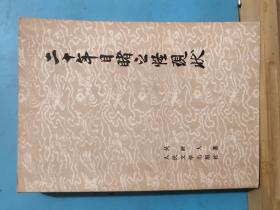 二十年目睹之怪现状
吴趼人著
人民文学出版社